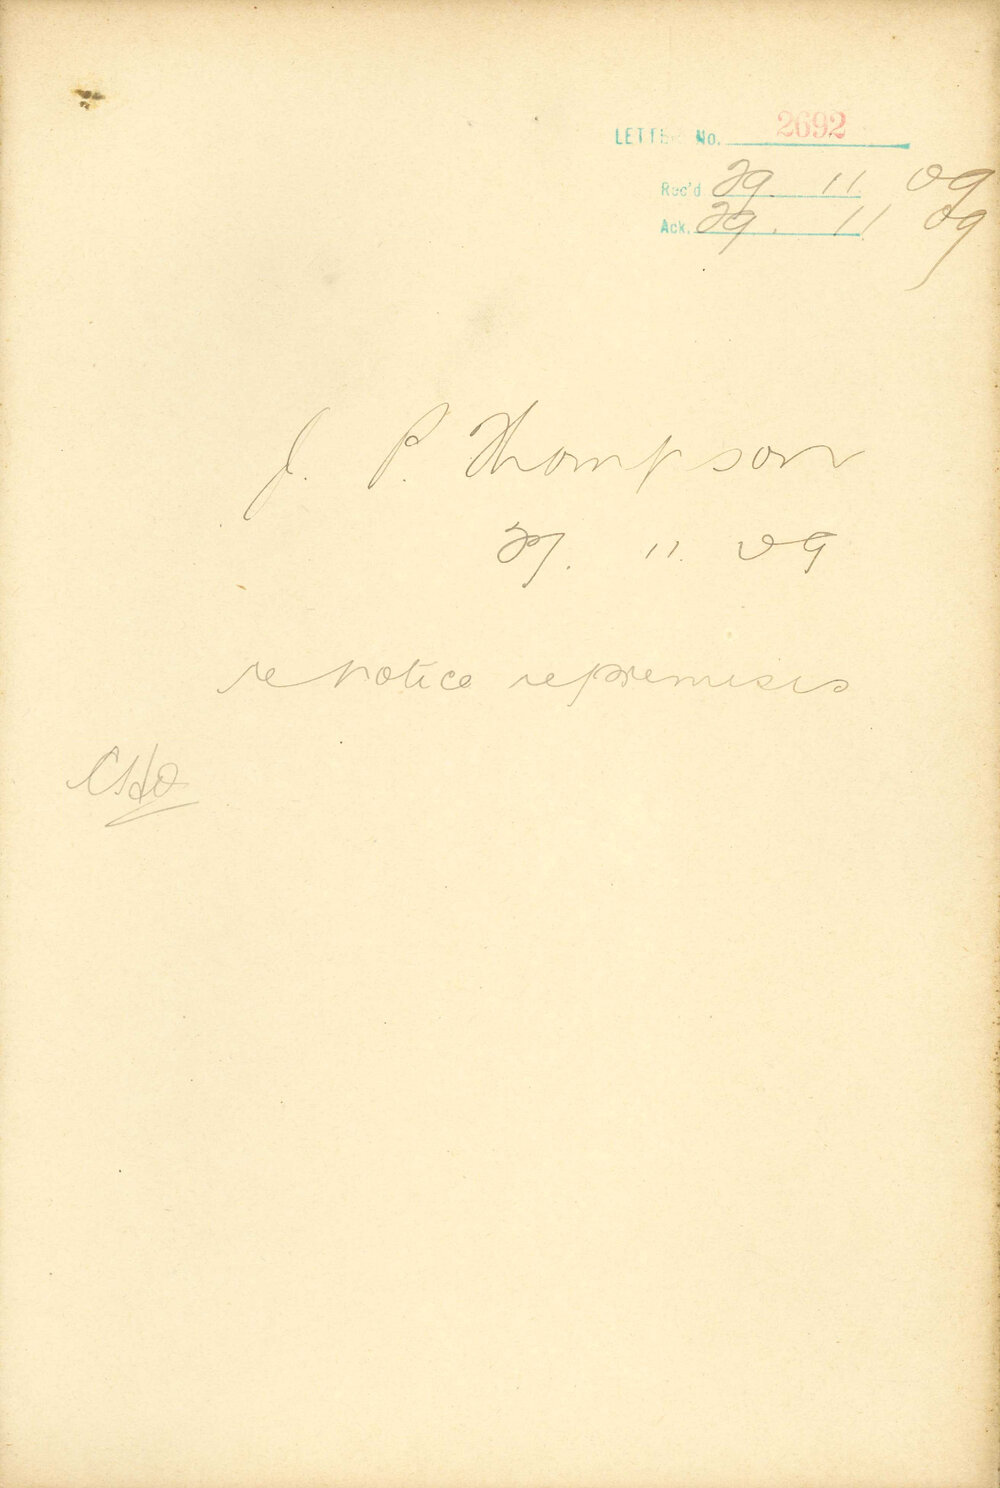 LETTER No. 2692
Rec'd 29. 11. 09
Ack. 29. 11 09
J. P. Thompson
27. 11. 09
re notice re premises